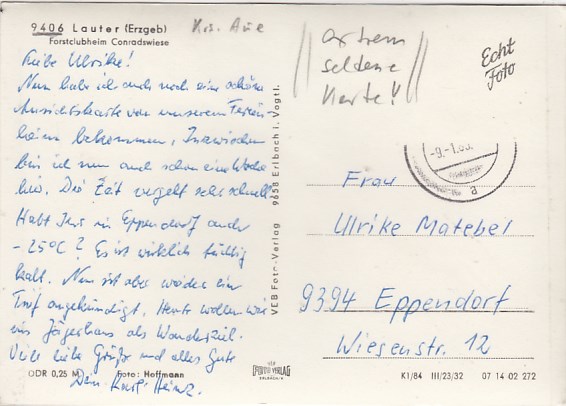 9406 Lauter (Erzgeb) Krs. Aue
Forstclubheim Conradswiese
extrem
seldene
Karte!!
Echt
Foto
Liebe Ulrike!
Nun habe ich auch noch eine schöne
Ansichtskarte von unserem Ferien-
heim bekommen. Inzwischen
bin ich nun auch schon eine Woche
hier. Die Zeit vergeht sehr schnell.
Habt Ihr in Eppendorf auch
-25°C? Es ist wirklich tüchtig
kalt. Nun ist aber wieder ein
Tief angekündigt. Heute wollen wir
ein Jägerhaus als Wanderziel.
Viele liebe Grüße und alles Gute
Dein Karl-Heinz.
-9.-1.85
a
Frau
Ulrike Matebel
9394 Eppendorf
Wiesenstr. 12
VEB Foto-Verlag 9658 Erlbach i. Vogtl.
DDR 0,25 M Foto: Hoffmann
VEB
FOTO VERLAG
ERLBACH
K1/84 III/23/32 07 14 02 272